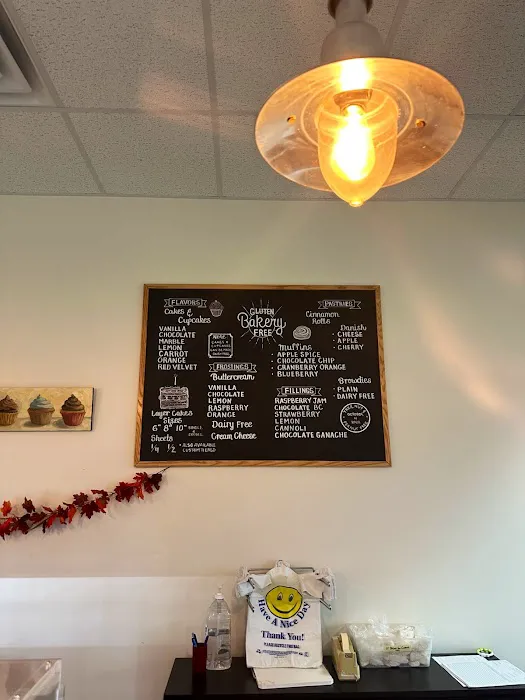 FLAVORS
Cakes &
Cupcakes
VANILLA
CHOCOLATE
MARBLE
LEMON
CARROT
ORANGE
RED VELVET
Layer Cakes
Sizes
6" 8" 10"
Sheets
1/4 1/2
* ALSO AVAILABLE
GLUTEN
Bakery
FREE
NOTE:
CAKES &
CUPCAKES
CAN BE MADE
DAIRY FREE
FROSTINGS
Buttercream
VANILLA
CHOCOLATE
LEMON
RASPBERRY
ORANGE
Dairy Free
Cream Cheese
PASTRIES
Cinnamon
Rolls
Muffins
· APPLE SPICE
· CHOCOLATE CHIP
· CRANBERRY ORANGE
· BLUEBERRY
Danish
· CHEESE
· APPLE
· CHERRY
Brownies
· PLAIN
· DAIRY FREE
FILLINGS
RASPBERRY JAM
CHOCOLATE BC
STRAWBERRY
LEMON
CANNOLI
CHOCOLATE GANACHE
Have A Nice Day
Thank You!